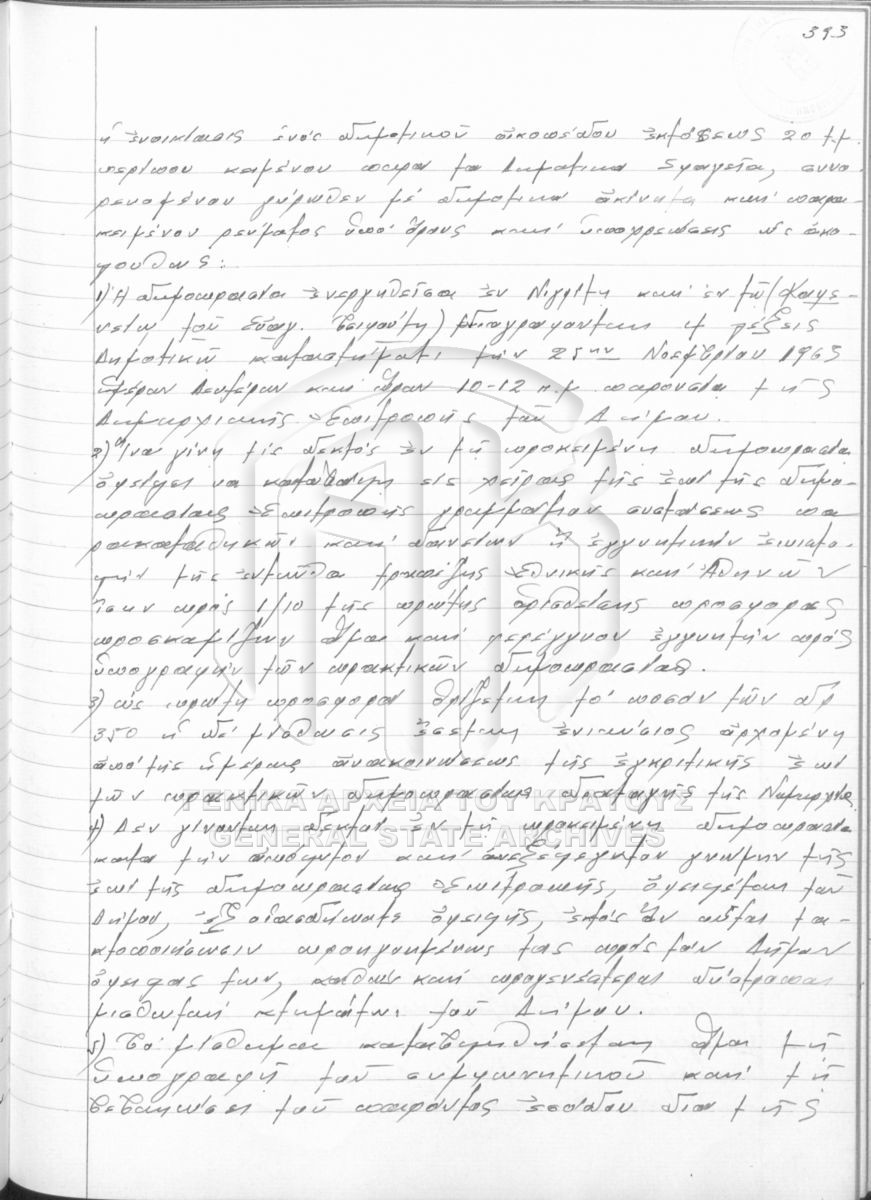 393
ἡ ἐνοικίασις ἑνός δημοτικοῦ οἰκοπέδου ἐκτάσεως 20 τ.μ.
περίπου κειμένου παρά τα Δημοτικά Σφαγεῖα, συνο-
ρευομένου γύρωθεν μέ δημοτικά ἀκίνητα καί παρα-
κειμένου ρεύματος ὑπό ὅρους καί ὑποχρεώσεις ὡς ἀκο-
λούθως:
1) Ἡ δημοπρασία ἐνεργηθεῖσα ἐν Νιγρίτῃ καί ἐν τῷ (Καφε-
νείῳ τοῦ Εὐαγ.
Δημοτικῷ καταστήματι τήν 25ην Νοεμβρίου 1963
ἡμέραν Δευτέραν καί ὥραν 10-12 π.μ. παρουσία τῆς
Δημαρχιακῆς Ἐπιτροπῆς τοῦ Δήμου.
2) Ἵνα γίνῃ τίς δεκτός ἐν τῇ προκειμένῃ δημοπρασία
ὀφείλει να καταθέσῃ εἰς χεῖρας τῆς ἐπί τῆς δημο-
πρασίας Ἐπιτροπῆς γραμμάτιον συστάσεως πα
ρακαταθηκῶν καί δανείων ἤ ἐγγυητικήν ἐπιστο-
λήν τῆς ἐνταῦθα τραπέζης Ἐθνικῆς καί Ἀθηνῶν
ἴσην πρός 1/10 τῆς πρώτης ὁρισθείσης προσφορᾶς
προσκομίζων ἅμα καί φερέγγυον ἐγγυητήν πρός
ὑπογραφήν τῶν πρακτικῶν δημοπρασίας.
3) ὡς πρώτη προσφορά ὁρίζεται τό ποσόν τῶν δρ
350 ἡ δέ μίσθωσις ἔσεται ἐνιαύσιος ἀρχομένη
ἀπό τῆς ἡμέρας ἀνακοινώσεως τῆς ἐγκριτικῆς ἐπί
τῶν πρακτικῶν δημοπρασίας διαταγῆς τῆς Νομαρχίας
4) Δέν γίνονται δεκτοί ἐν τῇ προκειμένῃ δημοπρασία
κατά τήν ἀπόλυτον καί ἀνεξέλεγκτον γνώμην τῆς
ἐπί τῆς δημοπρασίας Ἐπιτροπῆς, ὀφειλέται τοῦ
Δήμου, ἐξ οἱασδήποτε ὀφειλῆς, ἐκτός ἄν οὗτοι τα-
κτοποιήσωσιν προηγουμένως τάς πρός τόν Δῆμον
ὀφειλάς των, καθώς καί προγενέστεροι δύστροποι
μισθωταί κτημάτων τοῦ Δήμου.
5) Τό μίσθωμα καταβληθήσεται ἅμα τῇ
ὑπογραφῇ τοῦ συμφωνητικοῦ καί τῇ
βεβαιώσει τοῦ παρόντος ἐσόδου διά τῆς
ΓΕΝΙΚΑ ΑΡΧΕΙΑ ΤΟΥ ΚΡΑΤΟΥΣ
GENERAL STATE ARCHIVES